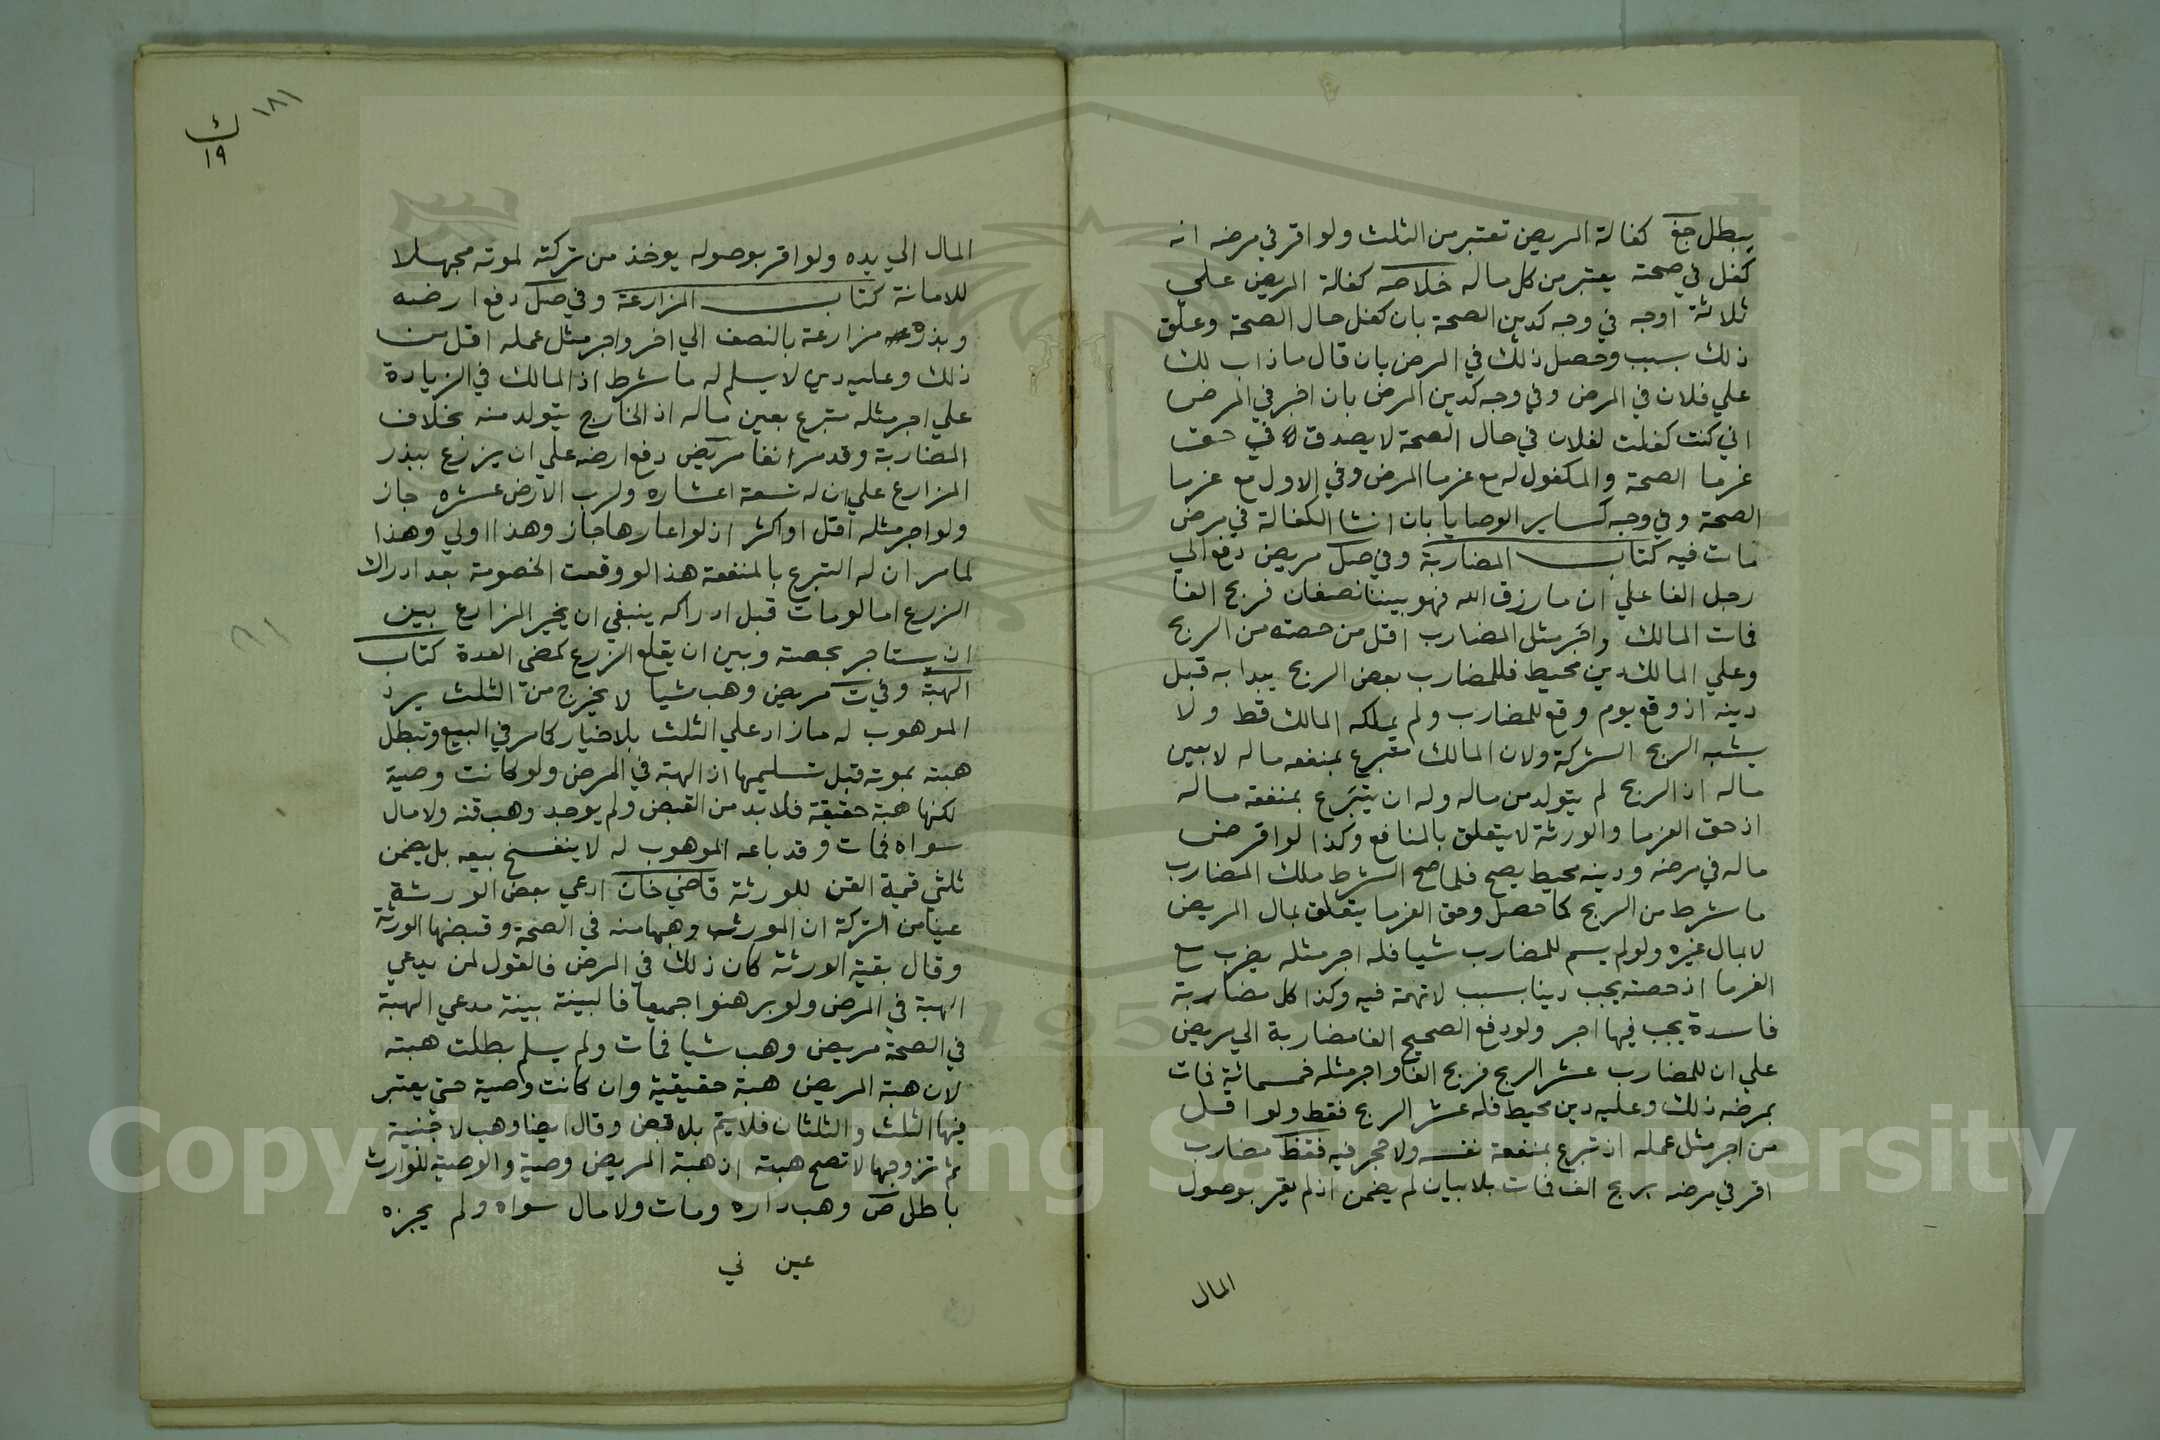 يبطل جغ كفالة المريض تعتبر من الثلث ولو اقر في مرضه انه
كفل في صحته يعتبر من كل ماله خلاصه كفالة المريض علي
ثلاثة اوجه في وجه كدين الصحة بان كفل حال الصحة وعلق
ذلك بسبب وحصل ذلك في المرض بان قال ما ذاب لك
علي فلان في المرض وفي وجه كدين المرض بان اخبر في المرض
اني كنت كفلت لفلان في حال الصحة لا يصدق في حق
غرما الصحة والمكفول له مع غرما المرض وفي الاول مع غرما
الصحة وفي وجه كساير الوصايا بان انشا الكفالة في مرض
مات فيه كتاب المضاربة وفي صل مريض دفع الي
رجل الفا علي ان ما رزق الله فهو بيننا نصفان فربح الفا
فمات المالك واجر مثل المضارب اقل من حصته من الربح
وعلي المالك دين محيط فللمضارب بعض الربح يبدا به قبل
دينه اذ وقع يوم وقع للمضارب ولم يملكه المالك قط ولا
يشبه الربح الشركة ولان المالك متبرع بمنفعه ماله لا بعين
ماله اذ الربح لم يتولد من ماله وله ان يتبرع بمنفعة ماله
اذ حق الغرما والورثة لا يتعلق بالمنافع وكذا لو اقرض
ماله في مرضه ودينه محيط يصح فلما صح الشرط ملك المضارب
ما شرط من الربح كما حصل وحق الغرما يتعلق بمال المريض
لا بمال غيره ولو لم يسم للمضارب شيا فله اجر مثله يضرب مع
الغرما اذ حصته يجب دينا بسبب لا تهمة فيه وكذا كل مضاربة
فاسدة يجب فيها اجر ولو دفع الصحيح الفا مضاربة الي مريض
علي ان للمضارب عشر الربح فربح الفا واجر مثله خمسمائة فمات
بمرضه ذلك وعليه دين محيط فله عشر الربح فقط ولو اقل
من اجر مثل عمله اذ تبرع بمنفعة نفسه ولا حجر فيه فقظ مضارب
اقر في مرضه بربح الف فمات بلا بيان لم يضمن اذ لم يقر بوصول
المال
١٨١
ك
١٩
المال الي يده ولو اقر بوصوله يوخذ من تركته لموته مجهلا
للامانة كتاب المزارعة وفي صل دفع ارضه
وبذره مزارعة بالنصف الي اخر واجر مثل عمله اقل من
ذلك وعليه دين لا يسلم له ما شرط اذ المالك في الزيادة
علي اجر مثله متبرع بعين ماله اذ الخارج يتولد منه بخلاف
المضاربة وقد مر انفا مريض دفع ارضه علي ان يزرع ببذر
المزارع علي ان له تسعة اعشاره ولرب الارض عشره جاز
ولو اجر مثله اقل او اكثر اذ لو اعارها جاز وهذا اولي وهذا
لما مر ان له التبرع بالمنفعة هذا لو وقعت الخصومة بعد ادراك
الزرع اما لو مات قبل ادراكه ينبغي ان يخير المزارع بين
ان يستاجر بحصته وبين ان يقلع الزرع كمضي المدة كتاب
الهبة وفي ت مريض وهب شيا لا يخرج من الثلث يرد
الموهوب له ما زاد علي الثلث بلا خيار كما مر في البيع وتبطل
هبته بموته قبل تسليمها اذ الهبة في المرض ولو كانت وصية
لكنها هبة حقيقة فلا بد من القبض ولم يوجد وهب قنه ولا مال
سواه فمات وقد باعه الموهوب له لا ينفسخ بيعه بل يضمن
ثلثي قيمة القن للورثة قاضي خان ادعي بعض الورثة
عينا من التركة ان المورث وهبها منه في الصحة وقبضها الورثة
وقال بقية الورثة كان ذلك في المرض فالقول لمن يدعي
الهبة في المرض ولو برهنوا جميعا فالبينة بينة مدعي الهبة
في الصحة مريض وهب شيا فمات ولم يسلم بطلت هبته
لان هبة المريض هبة حقيقية وان كانت وصية حتي يعتبر
فيها الثلث والثلثان فلا يتم بلا قبض وقال ايضا وهب لاجنبية
ثم تزوجها لا تصح هبته اذ هبة المريض وصية والوصية للوارث
باطل ص وهب داره ومات ولا مال سواه ولم يجزه
عين ني